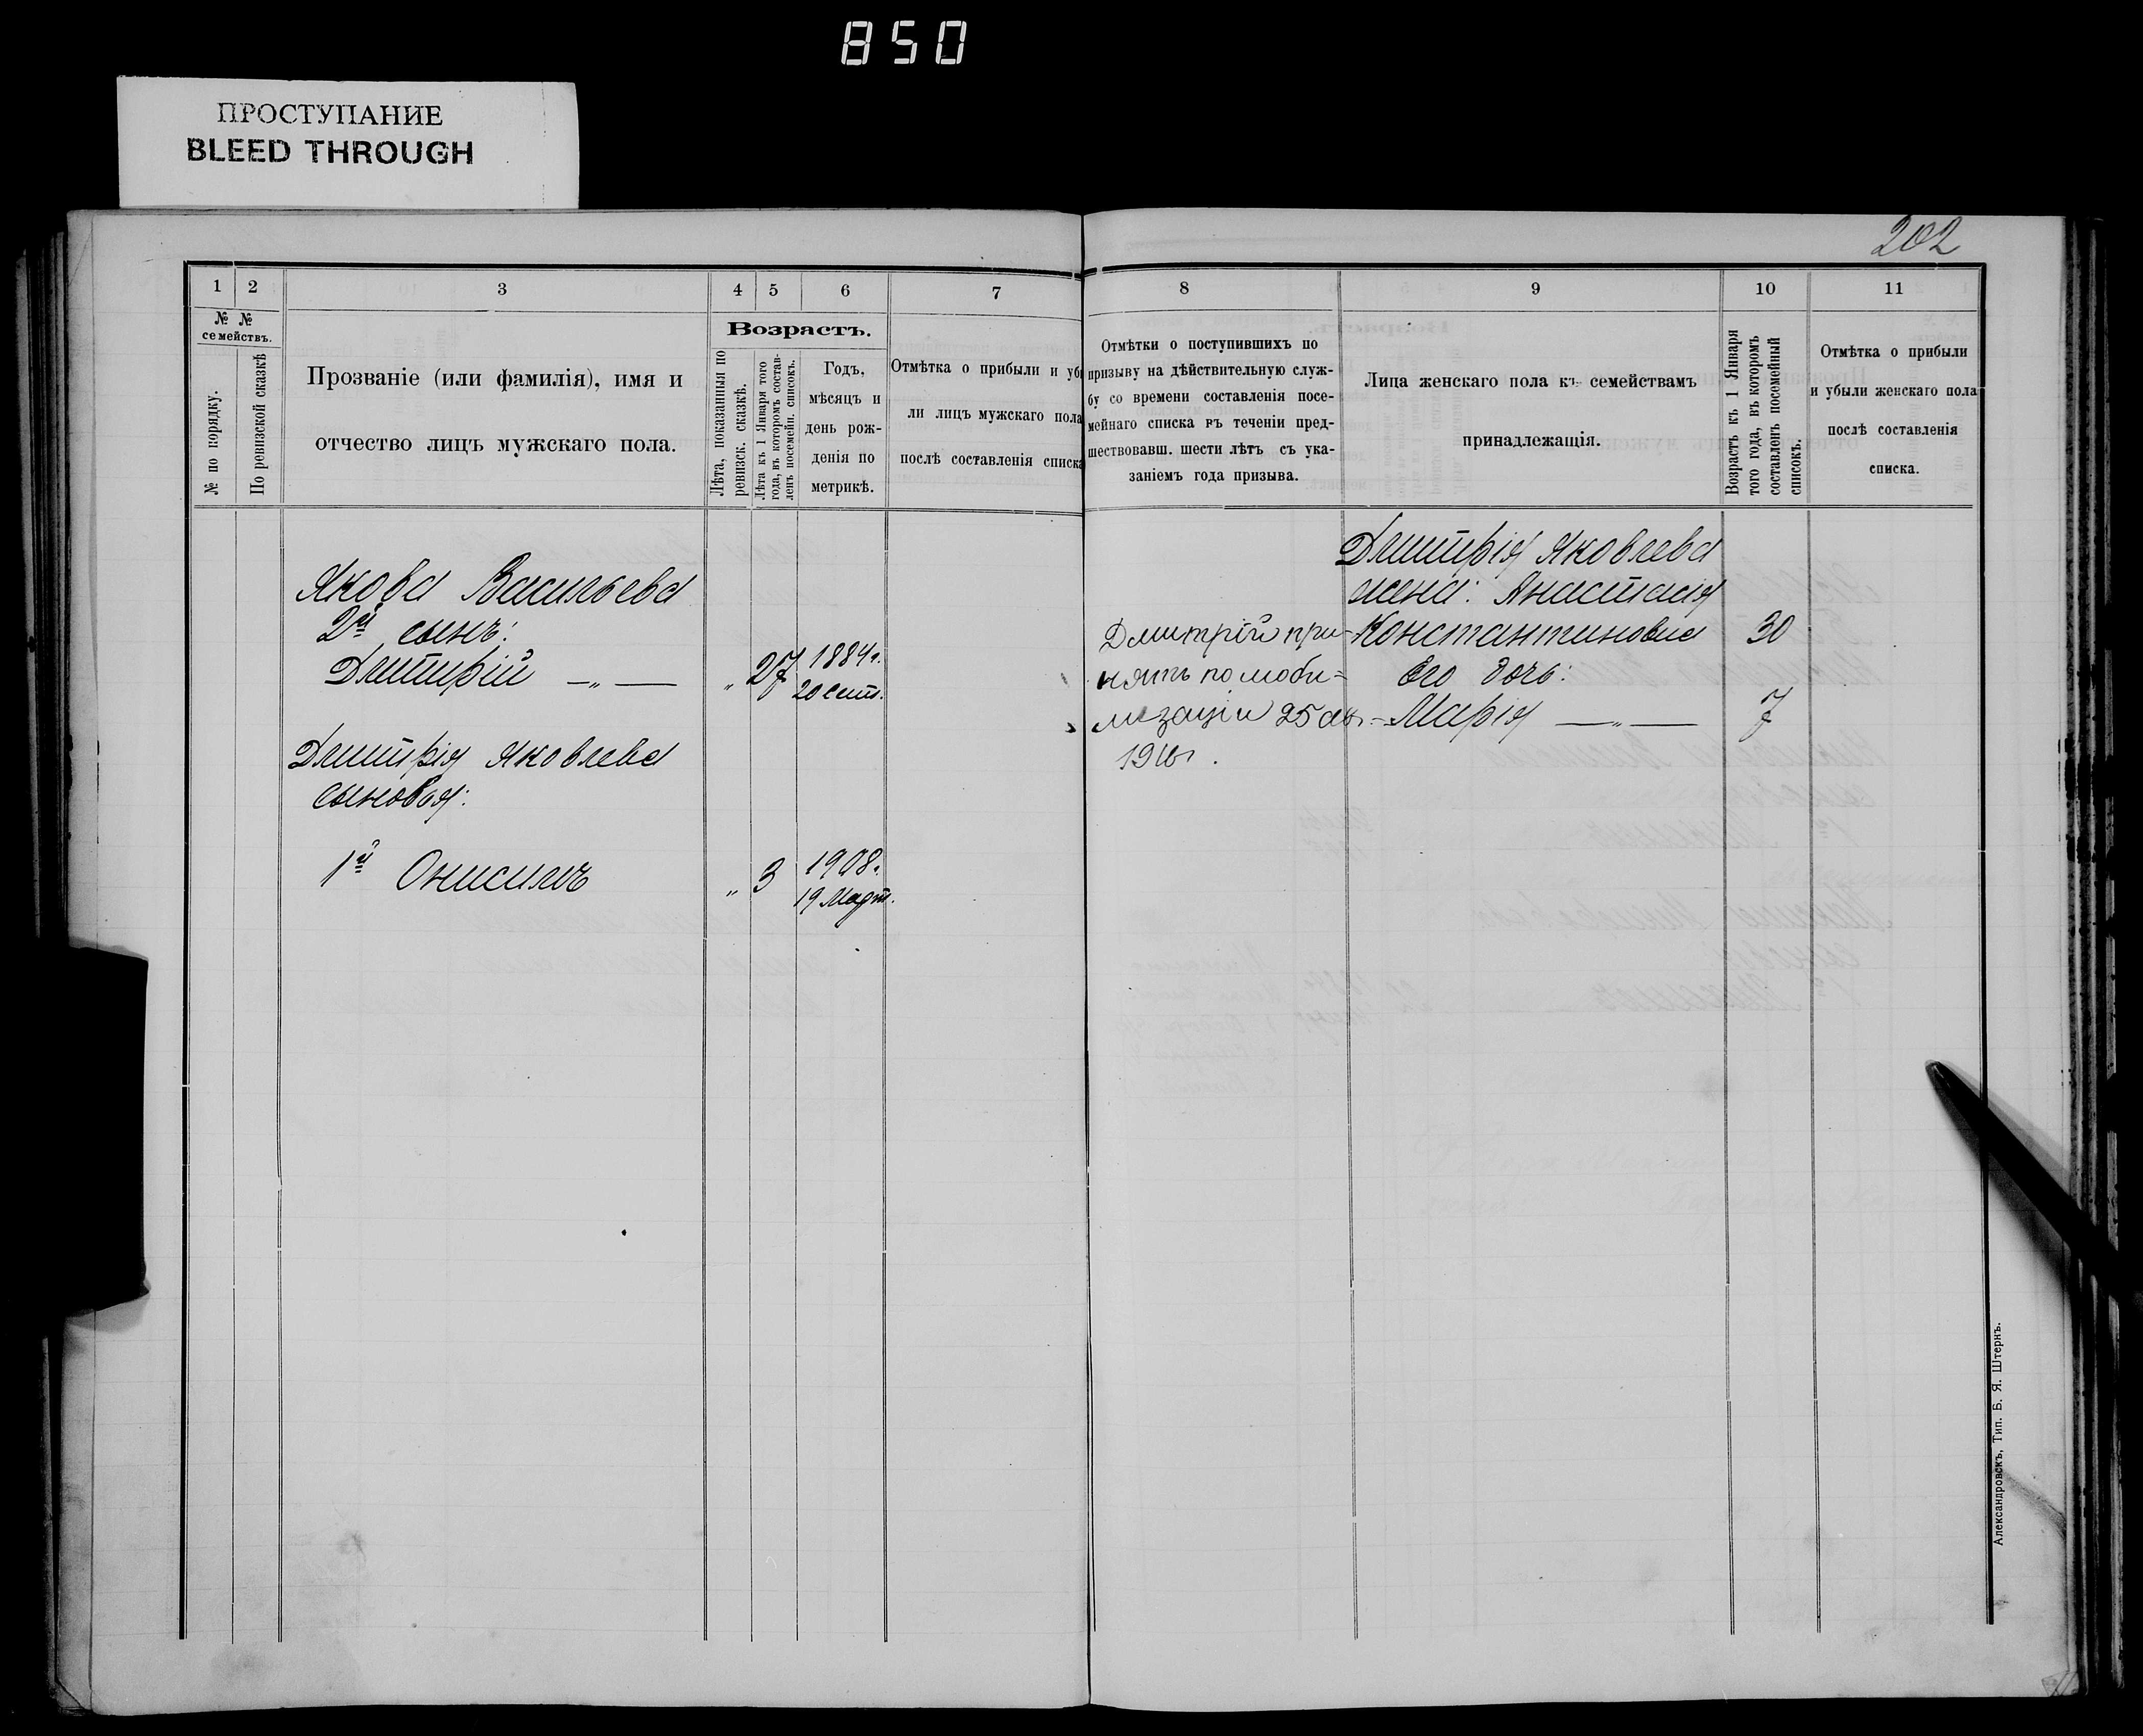 850
ПРОСТУПАНИЕ
BLEED THROUGH
202
1 2 3 4 5 6 7 8 9 10 11
№ №
семействъ.
№ по порядку.
По ревизской сказкѣ
Прозваніе (или фамилія), имя и
отчество лицъ мужскаго пола.
Возрастъ.
Лѣта, показанныя по
ревизск. сказкѣ.
Лѣта къ 1 Января того
года, въ которомъ состав-
ленъ посемейн. списокъ.
Годъ,
мѣсяцъ и
день рож-
денія по
метрикѣ.
Отмѣтка о прибыли и уб
ли лицъ мужскаго пола
послѣ составленія списка
Отмѣтки о поступившихъ по
призыву на дѣйствительную служ-
бу со времени составленія посе-
мейнаго списка въ теченіи пред-
шествовавш. шести лѣтъ съ ука-
заніемъ года призыва.
Лица женскаго пола къ семействамъ
принадлежащія.
Возрастъ къ 1 Января
того года, въ которомъ
составленъ посемейный
списокъ.
Отмѣтка о прибыли
и убыли женскаго пола
послѣ составленія
списка.
Якова Васильева
2й сынъ:
Дмитрій —„— „ 27 1884г.
20 Сент.
Дмитрія Яковлева
сыновья:
1й Онисимъ „ 3 1908г.
19 Март.
Дмитрій при-
нятъ по моби-
лизаціи 25
1916г.
Дмитрія Яковлева
жена: Анастасія
Константиновна 30
Его дочь:
Марія —„— 7
Александровскъ, Тип. Б. Я. Штернъ.